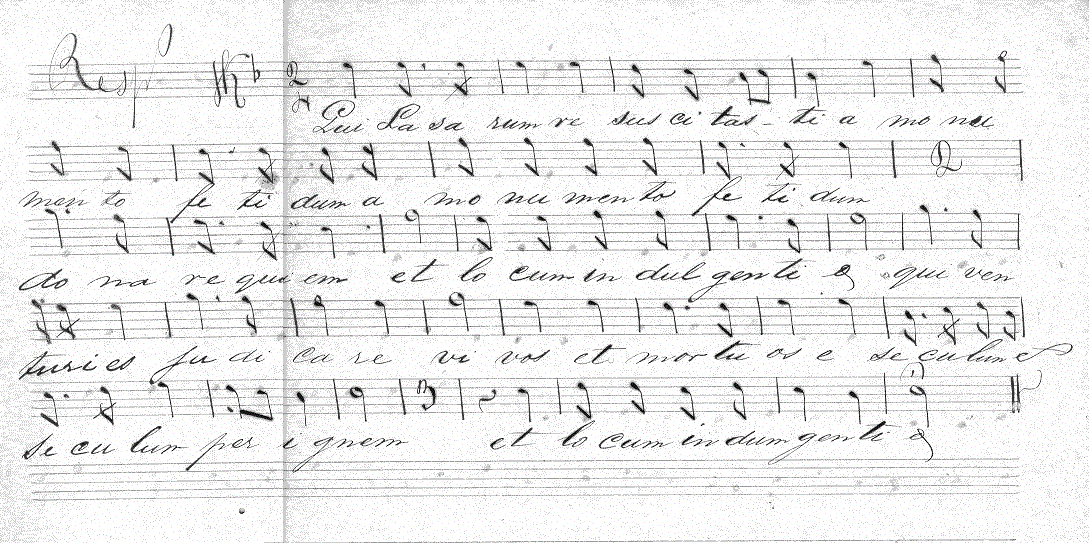 Resp
Qui La sa rum re sus ci tas - ti a mo nu
men to fe ti dum a mo nu men to fe ti dum
do na re qui em et lo cum in dul gen ti e qui ven
turi es ju di ca re vi vos et mor tu os e se cu lum e
se cu lum per i gnem et lo cum in dum gen ti e